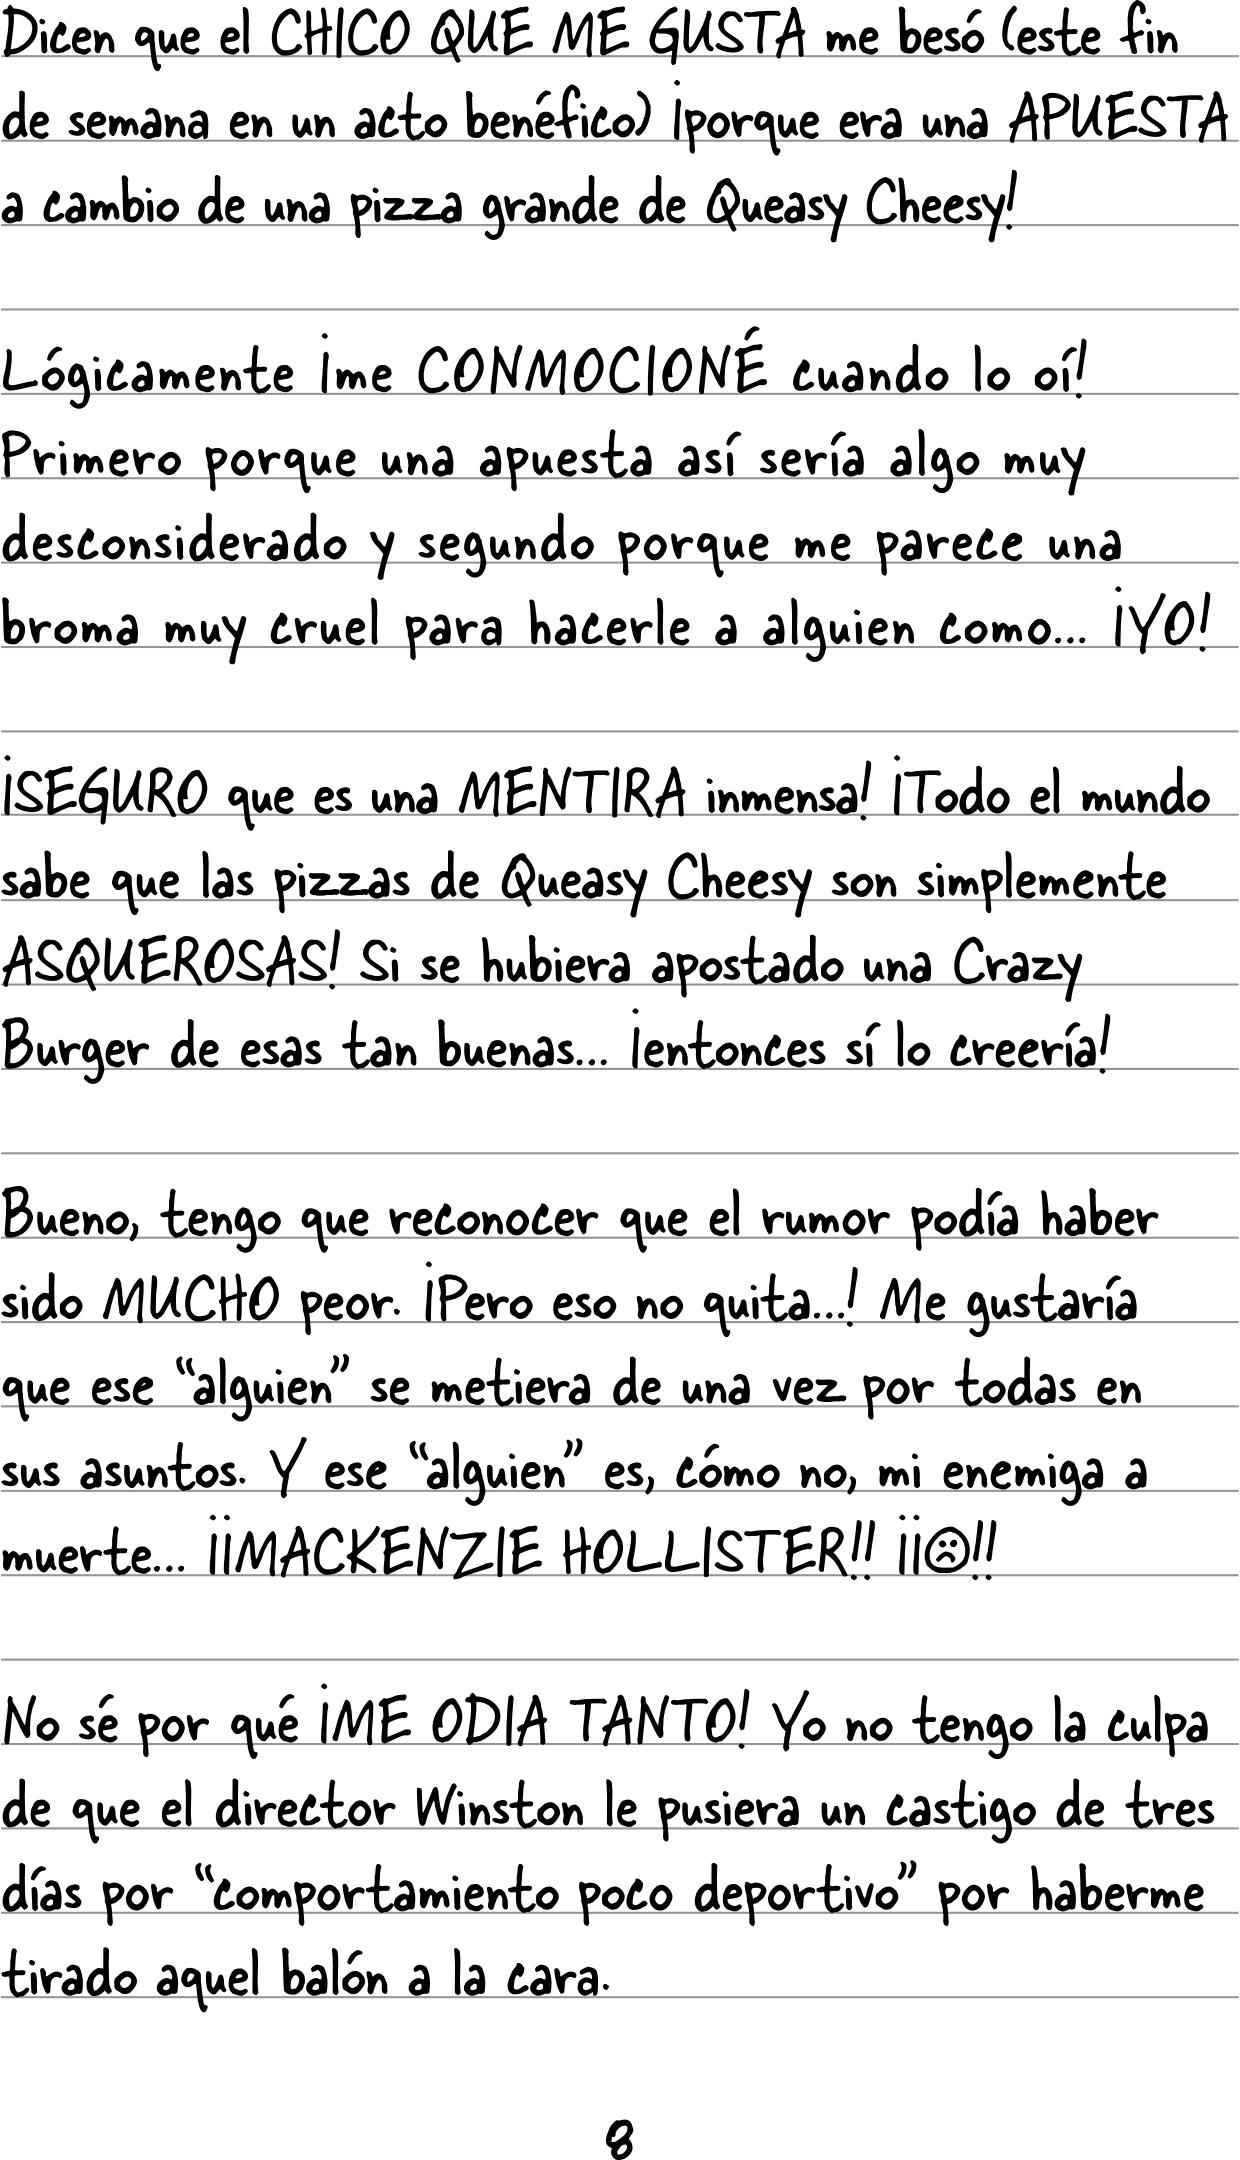 Dicen que el CHICO QUE ME GUSTA me besó (este fin
de semana en un acto benéfico) ¡porque era una APUESTA
a cambio de una pizza grande de Queasy Cheesy!
Lógicamente ¡me CONMOCIONÉ cuando lo oí!
Primero porque una apuesta así sería algo muy
desconsiderado y segundo porque me parece una
broma muy cruel para hacerle a alguien como... ¡YO!
¡SEGURO que es una MENTIRA inmensa! ¡Todo el mundo
sabe que las pizzas de Queasy Cheesy son simplemente
ASQUEROSAS! Si se hubiera apostado una Crazy
Burger de esas tan buenas... ¡entonces sí lo creería!
Bueno, tengo que reconocer que el rumor podía haber
sido MUCHO peor. ¡Pero eso no quita...! Me gustaría
que ese “alguien” se metiera de una vez por todas en
sus asuntos. Y ese “alguien” es, cómo no, mi enemiga a
muerte... ¡¡MACKENZIE HOLLISTER!! ¡¡☹!!
No sé por qué ¡ME ODIA TANTO! Yo no tengo la culpa
de que el director Winston le pusiera un castigo de tres
días por “comportamiento poco deportivo” por haberme
tirado aquel balón a la cara.
8